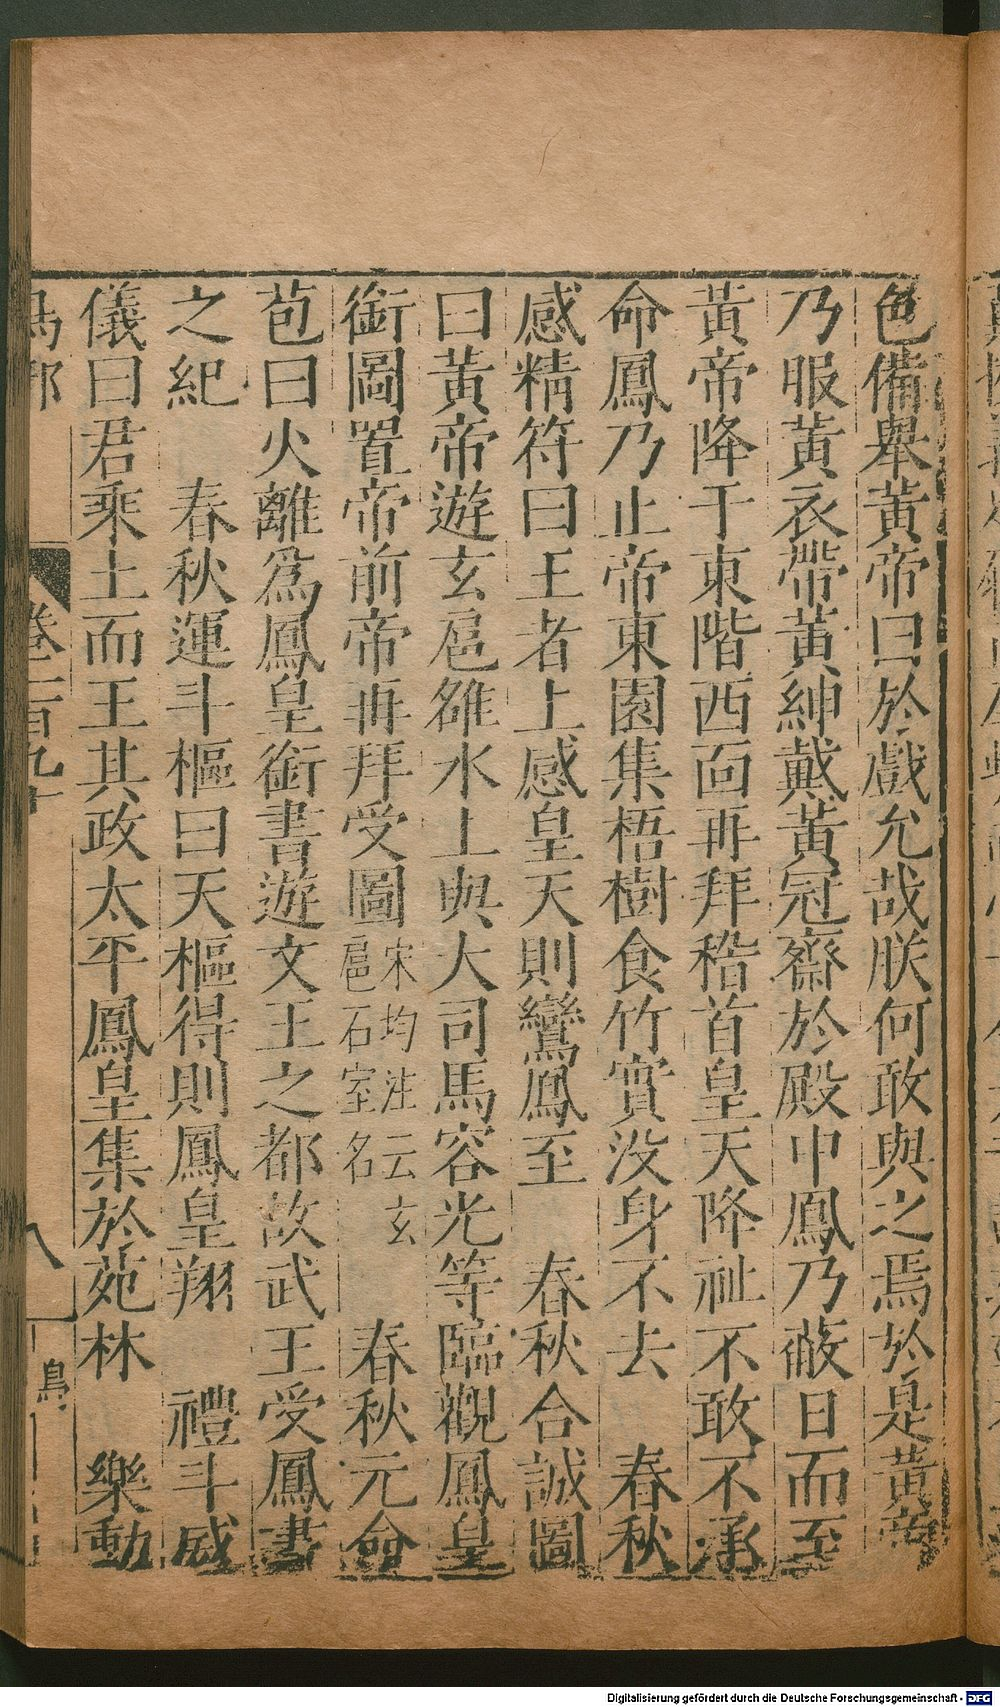 色備舉黃帝曰於戲允哉朕何敢與之焉於是黃帝
乃服黃衣帶黃紳戴黃冠齋於殿中鳳乃蔽日而至
黃帝降于東階西面再拜稽首皇天降祉不敢不承
命鳳乃止帝東園集梧樹食竹實没身不去　春秋
感精符曰王者上感皇天則鸞鳳至　春秋合誠圖
曰黃帝遊玄扈雒水上與大司馬容光等臨觀鳳皇
銜圖置帝前帝再拜受圖宋均注云玄扈石室名　春秋元命
苞曰火離爲鳳皇銜書遊文王之都故武王受鳳書
之紀　春秋運斗樞曰天樞得則鳳皇翔　禮斗威
儀曰君乘土而王其政太平鳳皇集於苑林　樂動
卷二百九十
八
鳥
Digitalisierung gefördert durch die Deutsche Forschungsgemeinschaft - DFG